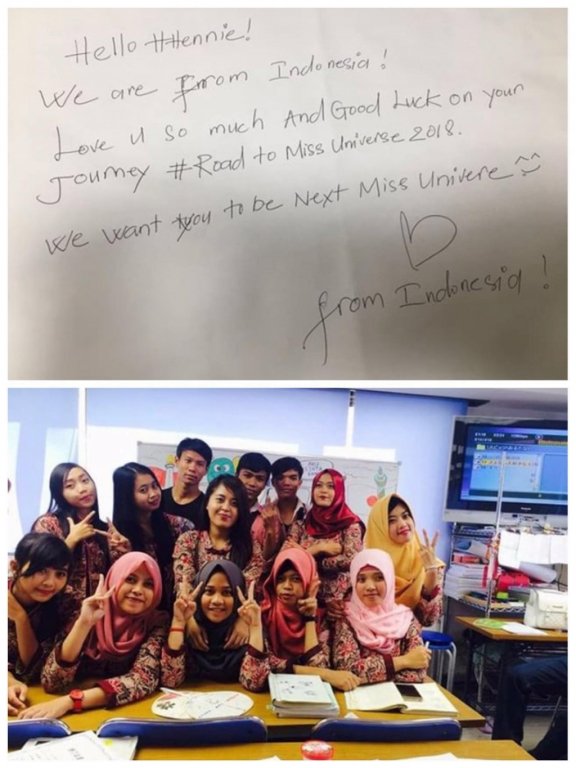 Hello #Hennie!
We are from Indonesia!
Love u so much And Good Luck on your
Journey #Road to Miss Universe 2018.
We want you to be Next Miss Univere ^^
from Indonesia!